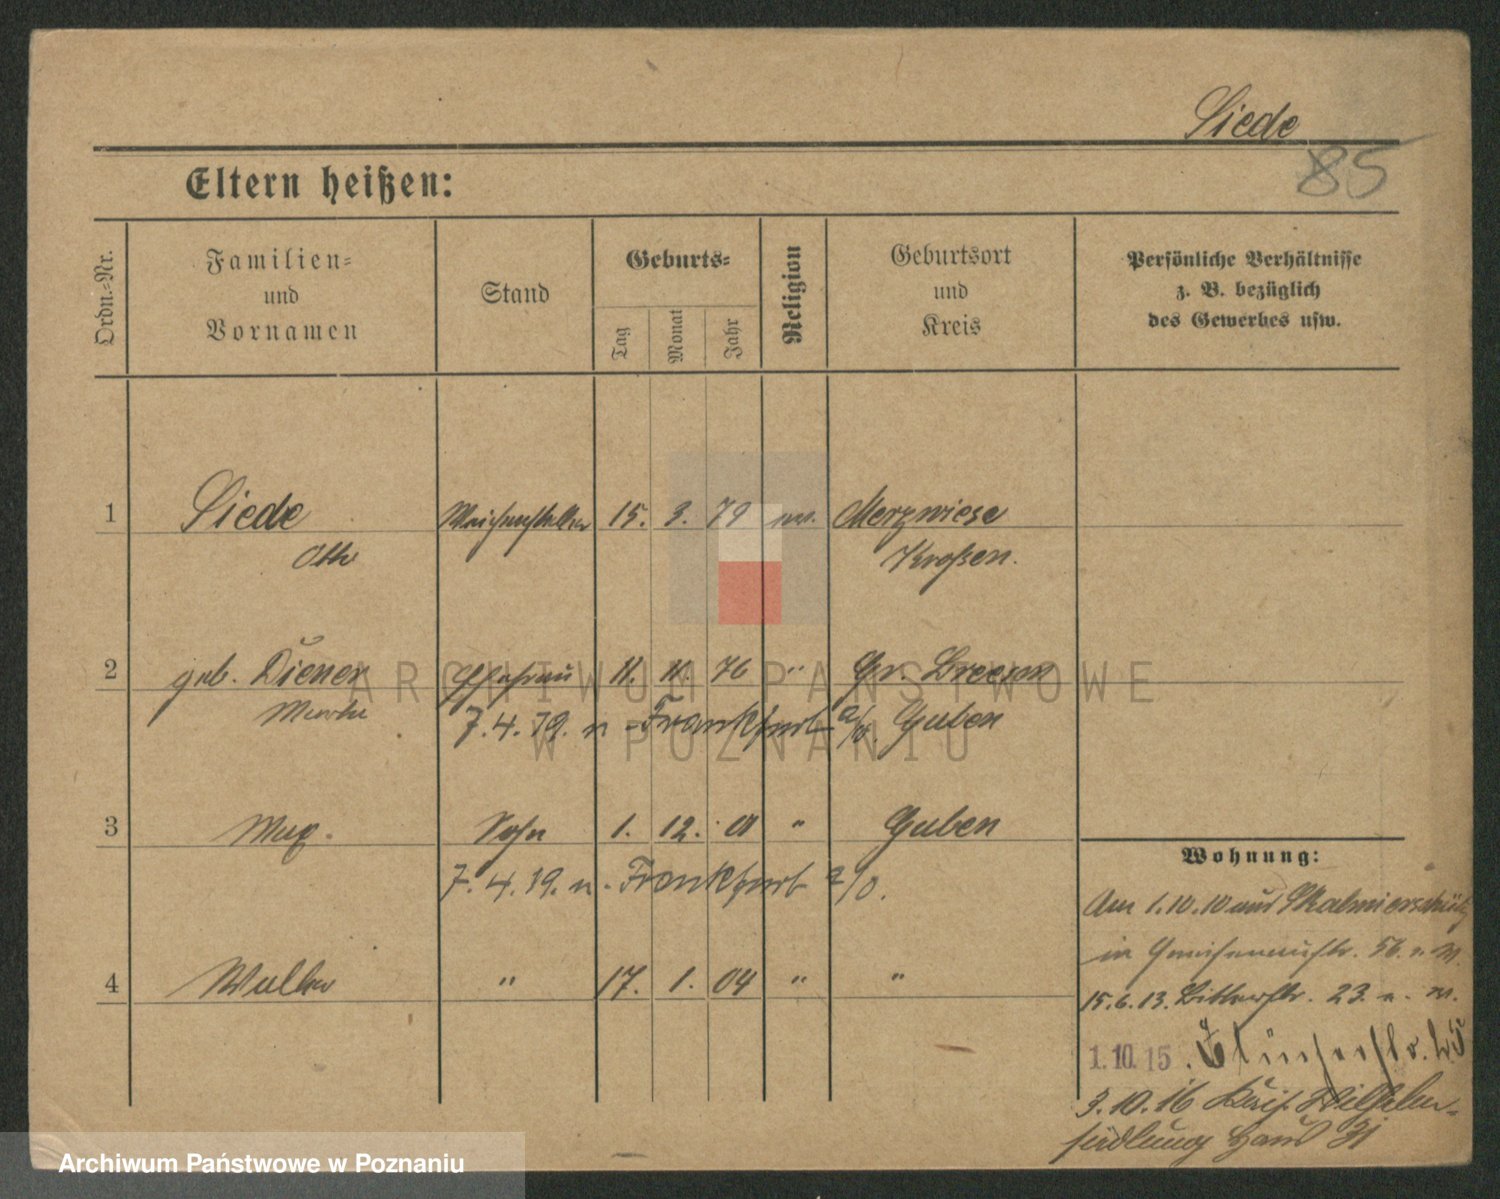 Siede
85
Eltern heißen:
Ordn.=Nr.
Familien=
und
Vornamen
Stand
Geburts=
Tag
Monat
Jahr
Religion
Geburtsort
und
Kreis
Persönliche Verhältnisse
z. B. bezüglich
des Gewerbes usw.
1 Siede Weichensteller 15. 3. 79 ev. Merzwiese
Otto Kroßen.
2 geb. Diener Ehefrau 11. 11. 76 " Gr. Breesen
7.4.19. n. Frankfurt a/O. Guben
3 Max. Sohn 1. 12. 01 " Guben
7.4.19. n. Frankfurt a/O.
4 Walter " 17. 1. 04 " "
Wohnung:
Am 1.10.10 aus Skalmierschütz
in Gneisenaustr. 56.
15.6.13. 23.
1.10.15.
3.10.16 Kais. Wilhelm-
siedlung Haus 31
ARCHIWUM PAŃSTWOWE
W POZNANIU
Archiwum Państwowe w Poznaniu